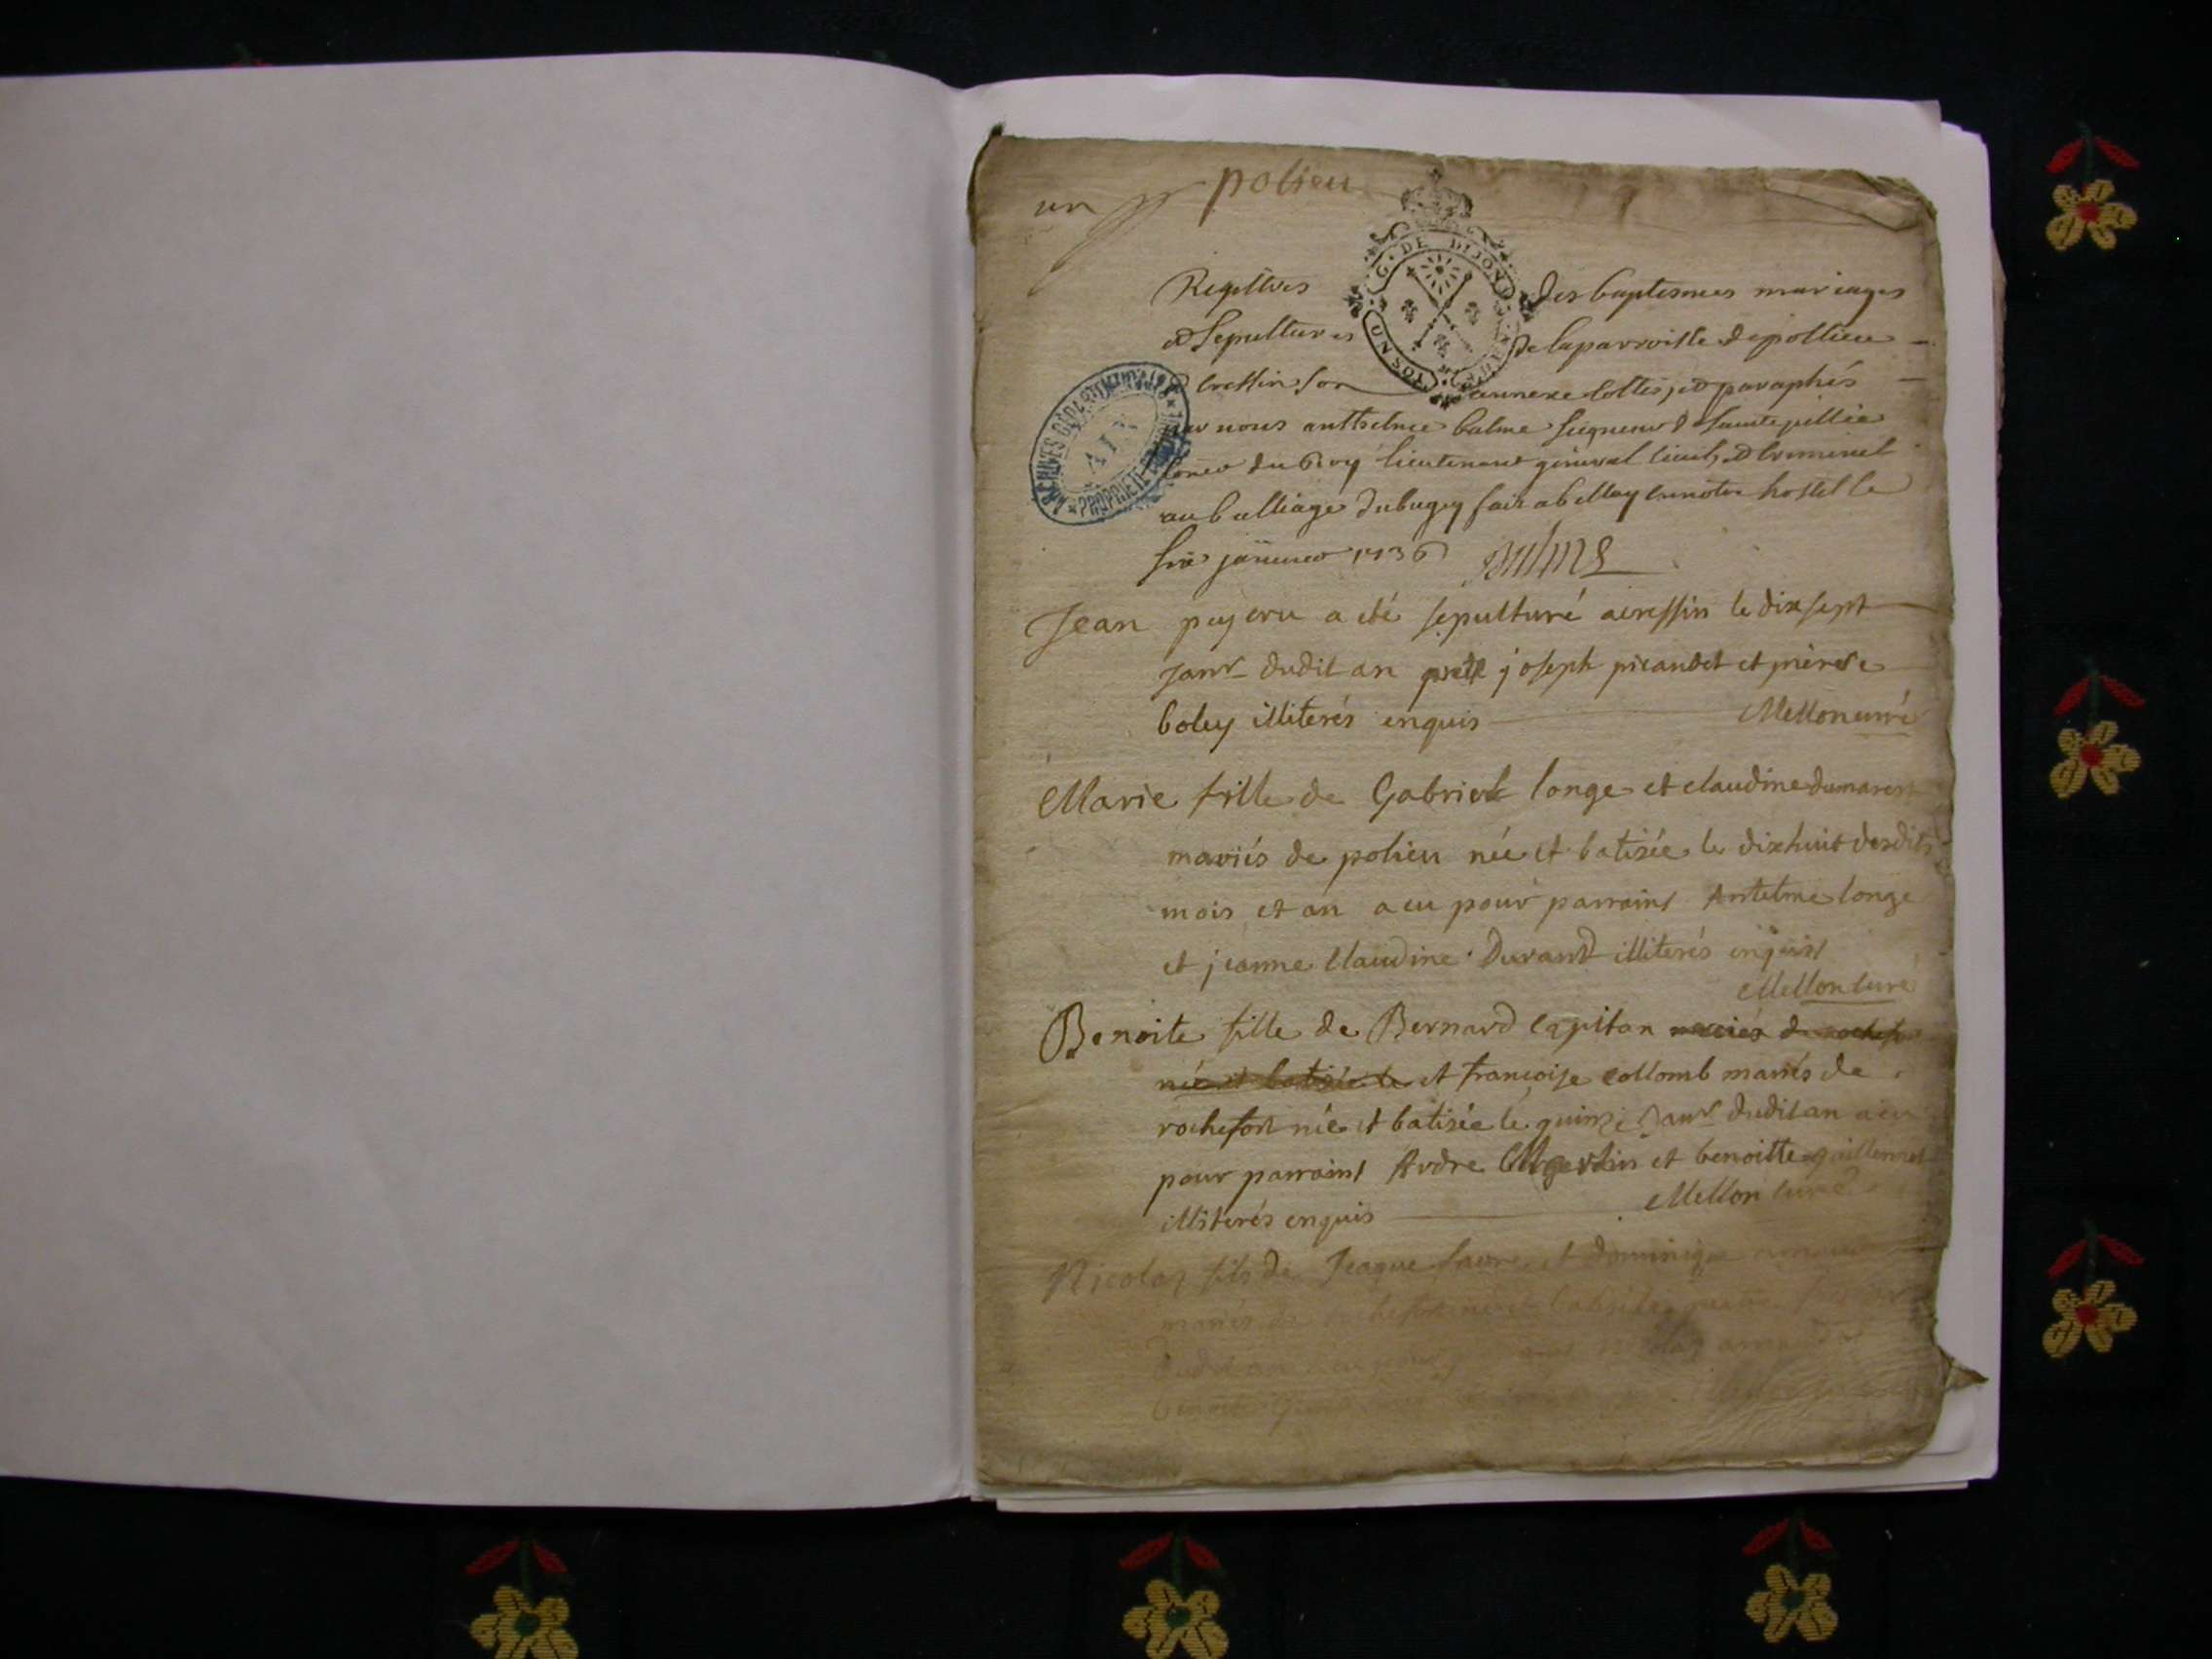 un polieu
G. DE DIJON
UN SOL
Registres des baptesmes mariages
et Sepultures de la parroisse de pollieu
cressin son annexe cottes, et paraphés
par nous anthelme balme seigneur de Sainte jullie
du Roy lieutenant general civil, et Criminel
au balliage du bugey fait a belley en notre hostel le
janvier 1736 Balme
ARCHIVES DÉPARTEMENTALES
AIN
PROPRIÉTÉ PUBLIQUE
Jean peyeru a été sepulturé a cressin le dix sept
janvr dudit an joseph picandet et
boley illiterés enquis Mellon curé
Marie fille de Gabriel longe et claudine dumarest
mariés de polieu née et batisée le dixhuit desdits
mois et an a eu pour parrains Antelme longe
et jeanne Claudine Durand illiterés enquis
Mellon curé
Benoite fille de Bernard capitan mariés de rochefort
née et batisée le et françoise collomb mariés de
rochefort née et batisée le quinze Janvr dudit an a eu
pour parrains et benoitte
illiterés enquis Mellon curé
Nicolas fils de Jeaque favre et dominique
mariés de
dudit an a eu pour